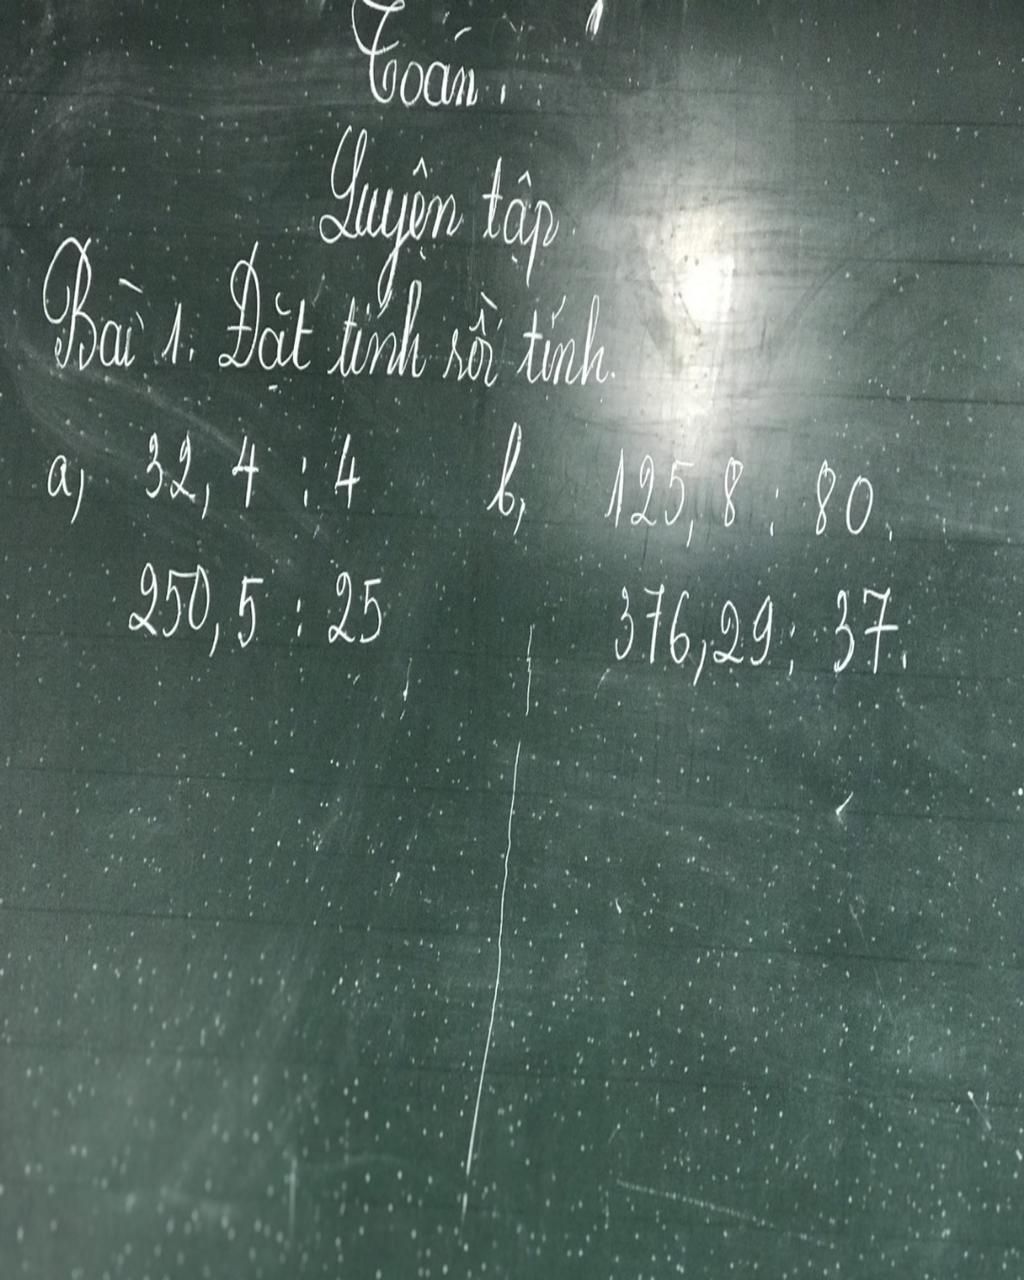 Toán.
Luyện tập.
Bài 1. Đặt tính rồi tính.
a, 32,4 : 4 b, 125,8 : 80.
250,5 : 25 376,29 : 37.